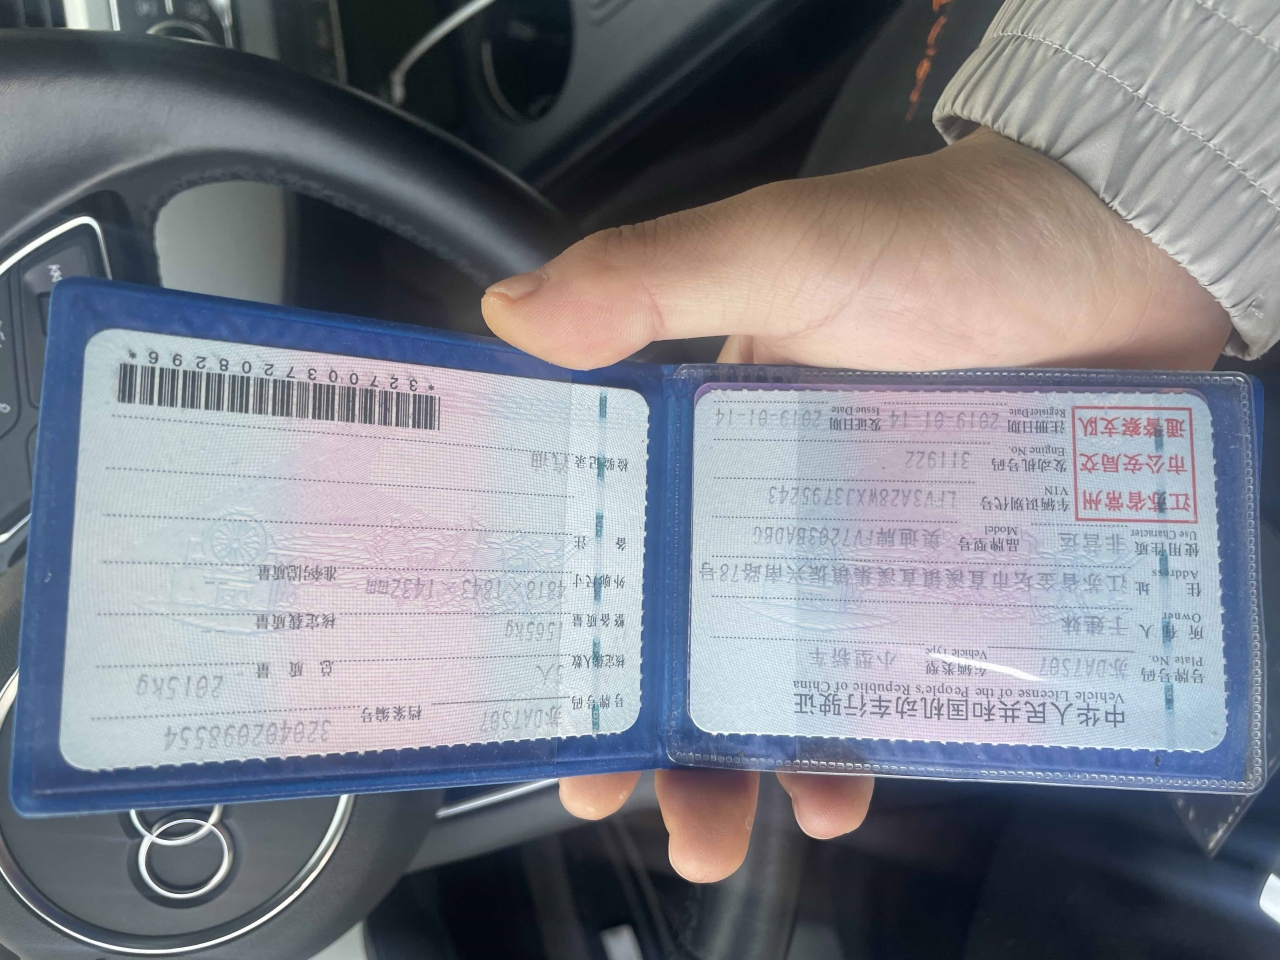 中华人民共和国机动车行驶证
Vehicle License of the People's Republic of China
号牌号码 苏DA7S07 车辆类型 小型轿车
Plate No. Vehicle Type
所有人 于建妹
Owner
住址 江苏省金坛市直溪镇直溪集镇振兴南路78号
Address
使用性质 非营运 品牌型号 奥迪牌FV7203BADBG
Use Character Model
江苏省常州
市公安局交
通警察支队
车辆识别代号 LFV3A28WXJ3795243
VIN
发动机号码 311922
Engine No.
注册日期 2019-01-14 发证日期 2019-01-14
Register Date Issue Date
号牌号码 苏DA7S07 档案编号 320402098554
核定载人数 5人 总质量 2015kg
整备质量 1565kg 核定载质量
外廓尺寸 4818×1843×1432mm 准牵引总质量
备注
检验记录 汽油
*3270037208296*